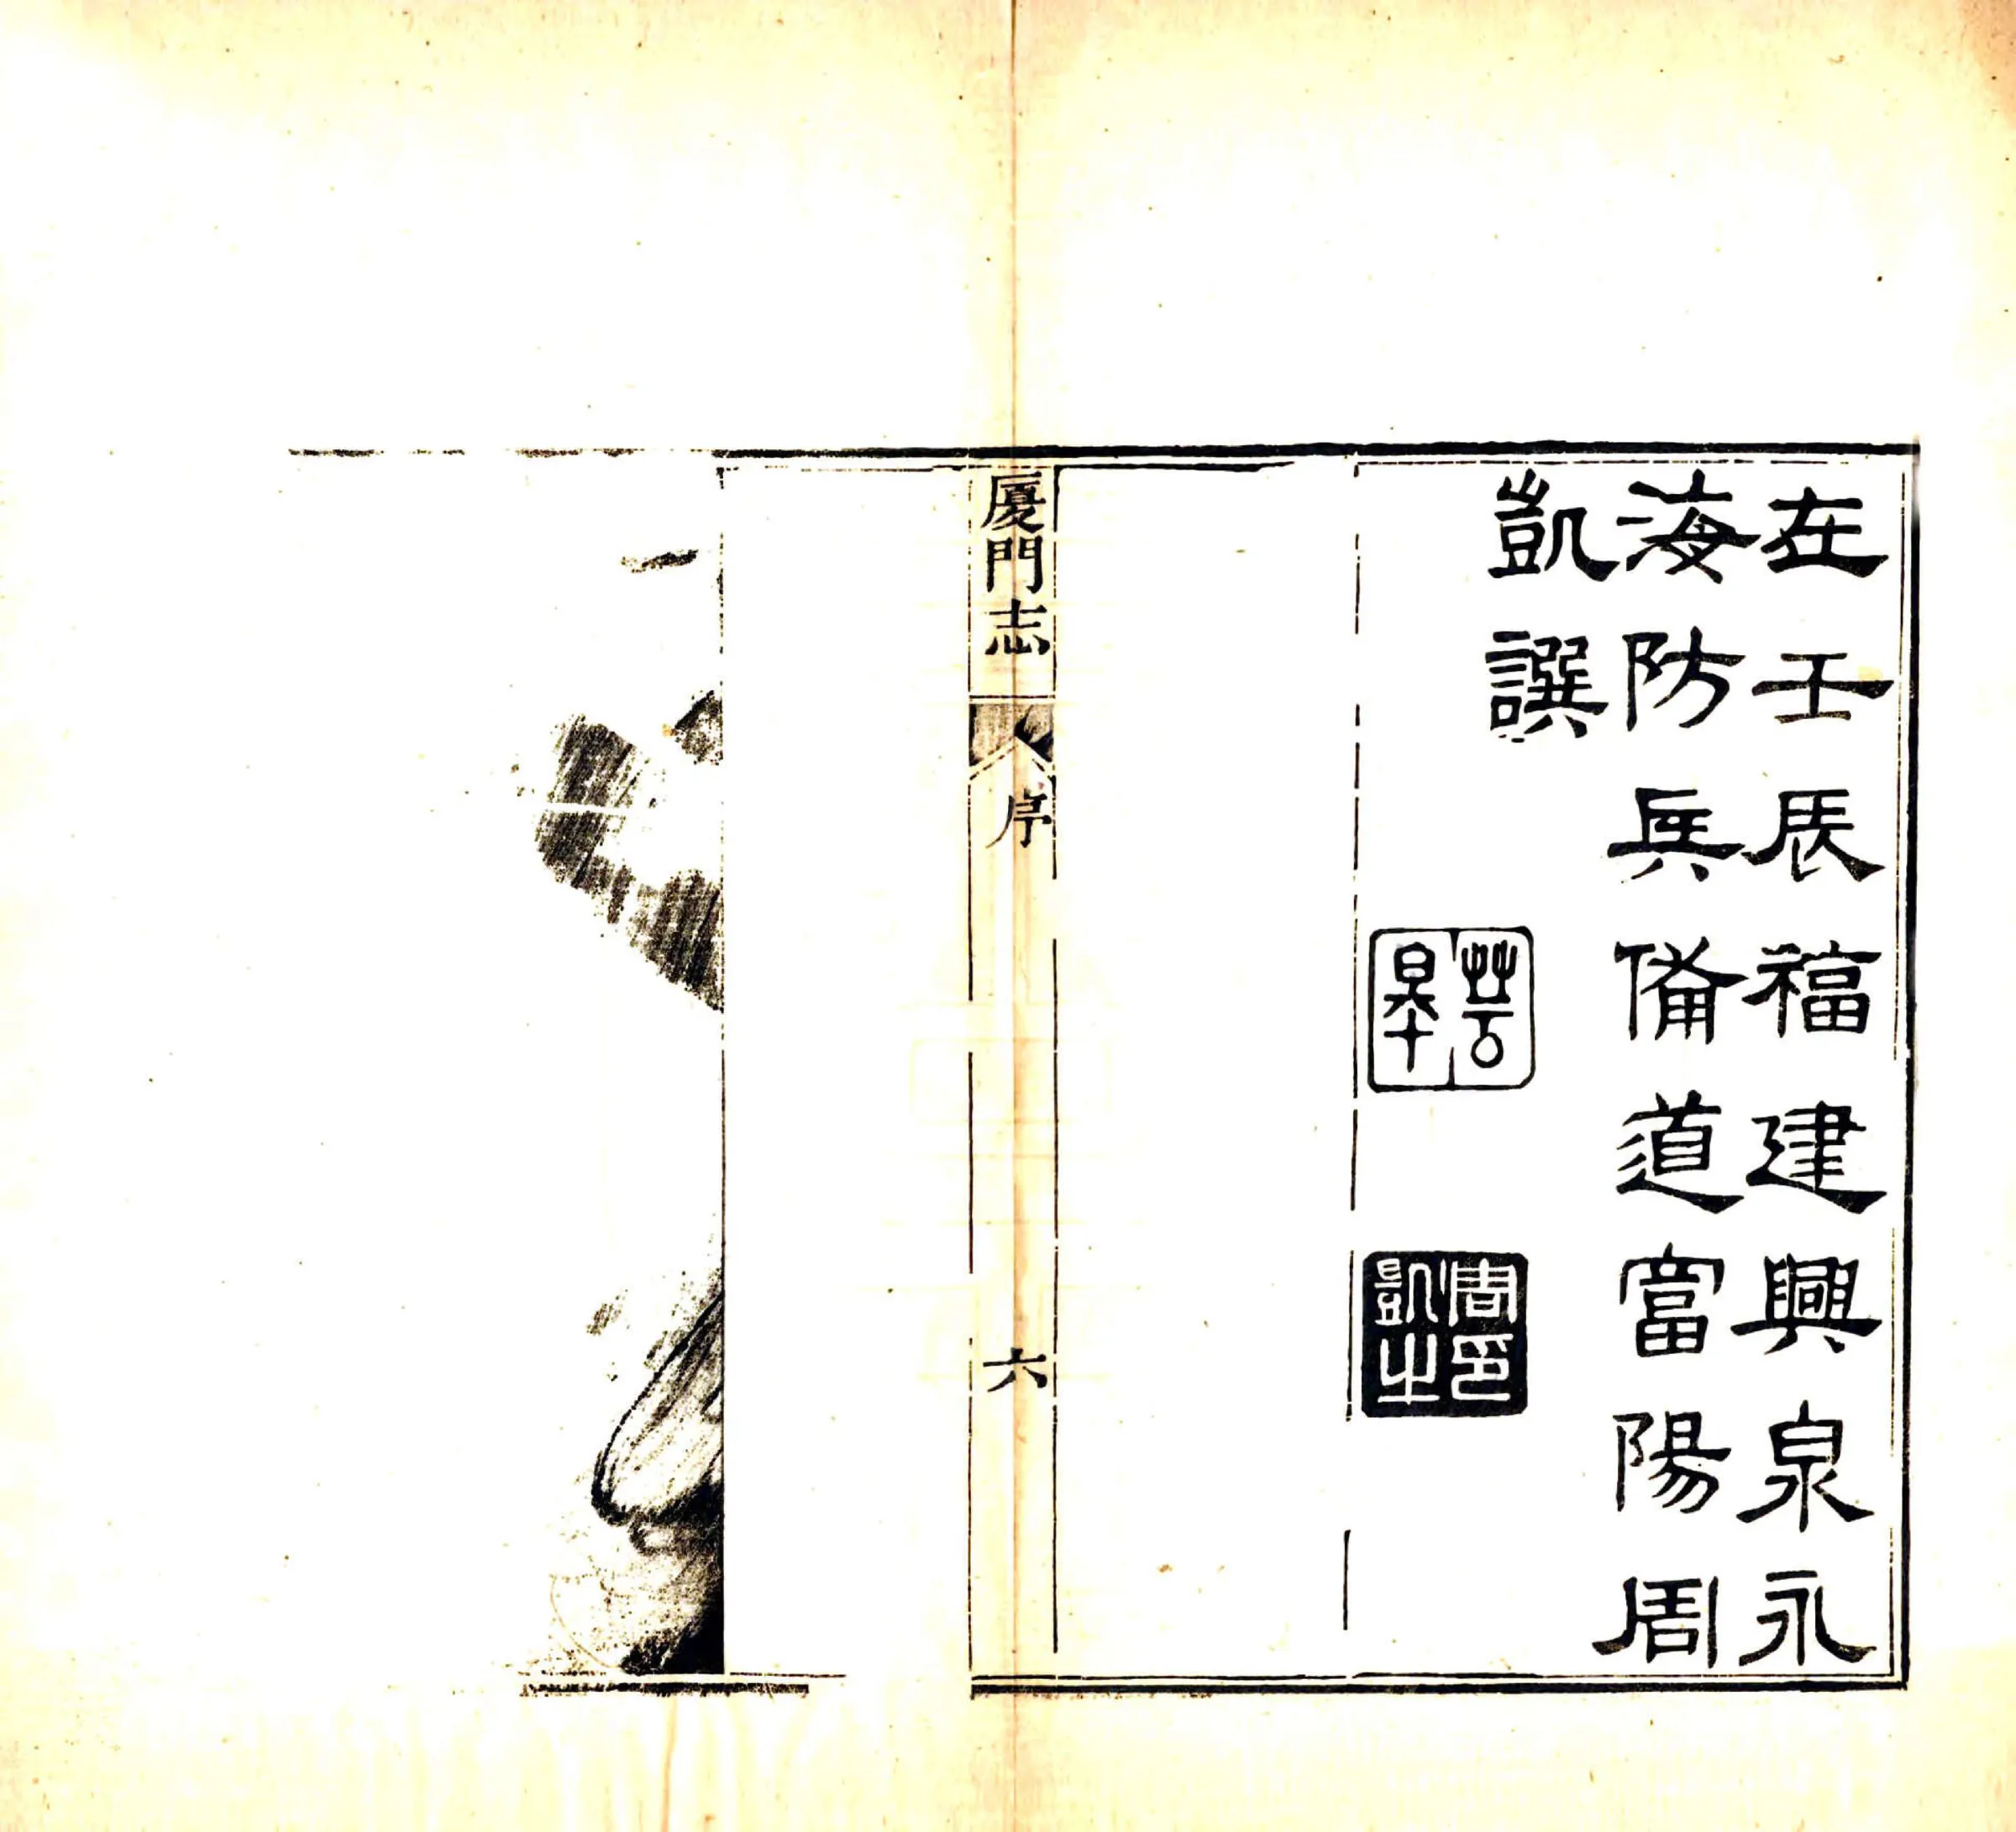 在壬辰福建興泉永
海防兵備道富陽周
凱譔
芸皋
周凱之印
廈門志
序
六